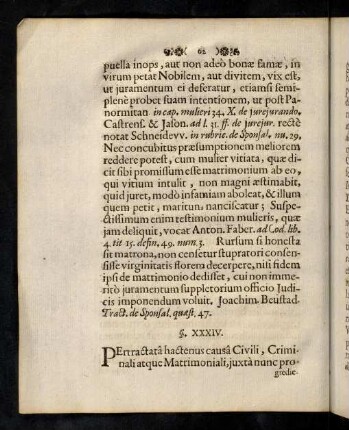 62
puella inops, aut non adeò bonæ famæ, in
virum petat Nobilem, aut divitem, vix est,
ut juramentum ei deferatur, etiamsi semi-
plenè probet suam intentionem, ut post Pa-
normitan in cap. mulieri 34. X. de jurejurando.
Castrens. & Jason. ad l. 31. ff. de jurejur. rectè
notat Schneidevv. in rubric. de Sponsal. nu. 29.
Nec concubitus præsumptionem meliorem
reddere potest, cum mulier vitiata, quæ di-
cit sibi promissum esse matrimonium ab eo,
qui vitium intulit, non magni æstimabit,
quid juret, modò infamiam aboleat, & illum
quem petit, maritum nanciscatur; Suspe-
ctissimum enim testimonium mulieris, quæ
jam deliquit, vocat Anton. Faber. ad Cod. lib.
4. tit 15. defin. 49. num. 3. Rursum si honesta
sit matrona, non censetur stupratori consen-
sisse virginitatis florem decerpere, nisi fidem
ipsi de matrimonio dedisset, cui non imme-
ritò juramentum suppletorium officio Judi-
cis imponendum voluit. Joachim. Beustad.
Tract. de Sponsal. quæst. 47.
§. XXXIV.
PErtractatâ hactenus causâ Civili, Crimi-
nali atque Matrimoniali, juxtà nunc pro-
gredie-